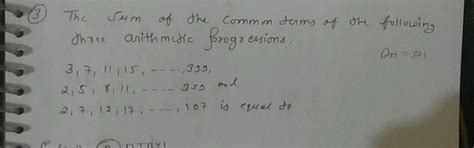 ③ The sum of the common terms of the following
three arithmetic progressions.
3, 7, 11, 15, ----, 399,
2, 5, 8, 11, ---- 359 and
2, 7, 12, 17, ----, 197 is equal to
Ans = 321